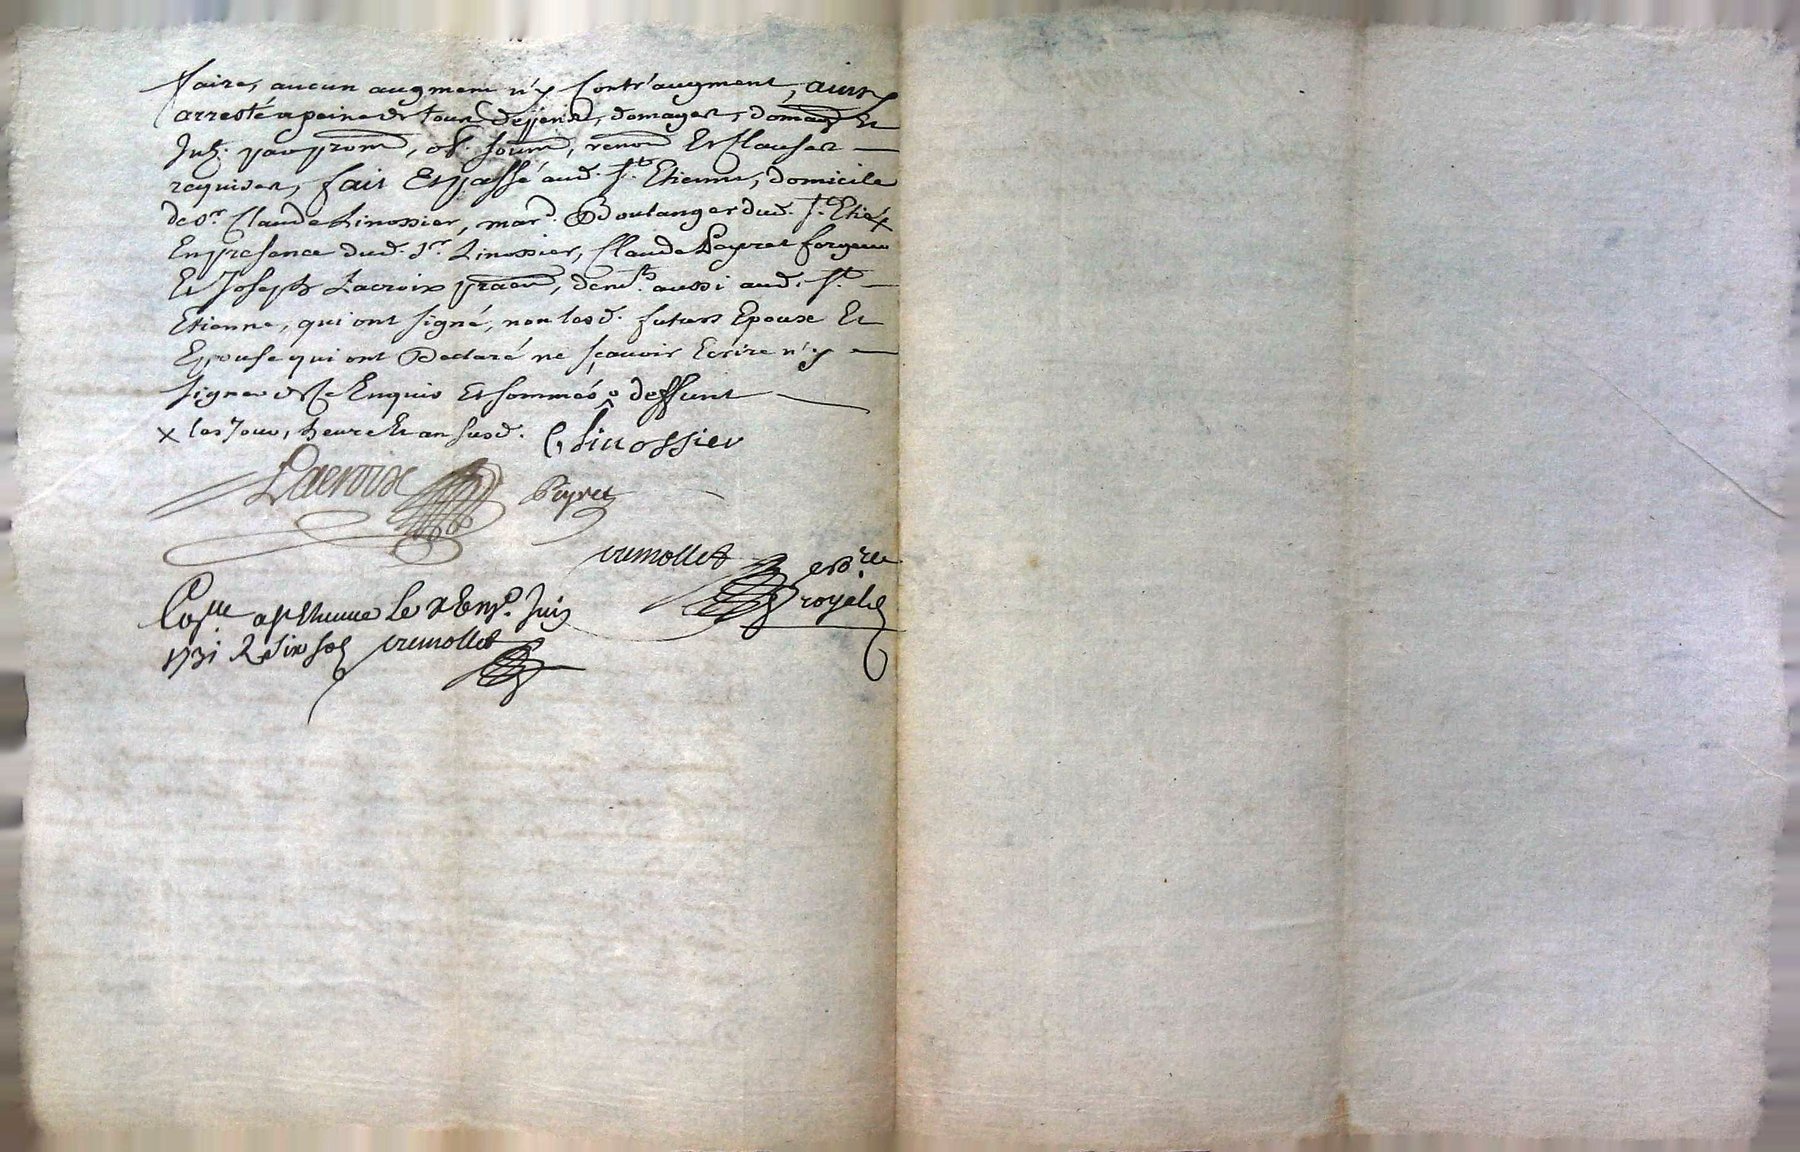 faire, aucun augment n'y Contr'augment, ainsy
arresté a peine de tous depens, domages, domag et
Int. par prom, ob. soum, renon Et Clauses
requises, fait Et passé aud. St. Etienne, domicile
de Sr. Claude Linossier, mard. Boulanger dud. St. Etie x
En presence dud. Sr. Linossier, Claude Peyret forgeur
Et Joseph Lacroix pratn, demts. aussi aud. St.
Etienne, qui ont signé, non lesd. futurs Epoux Et
Epouse qui ont Declaré ne sçavoir Ecrire n'y
signer de ce Enquis Et sommés, deffunt
x les Jour, heure Et an susd. C Linossier
Lacroix Peyret
nore
royal
a st Etienne Le Juin
1731 R six sols